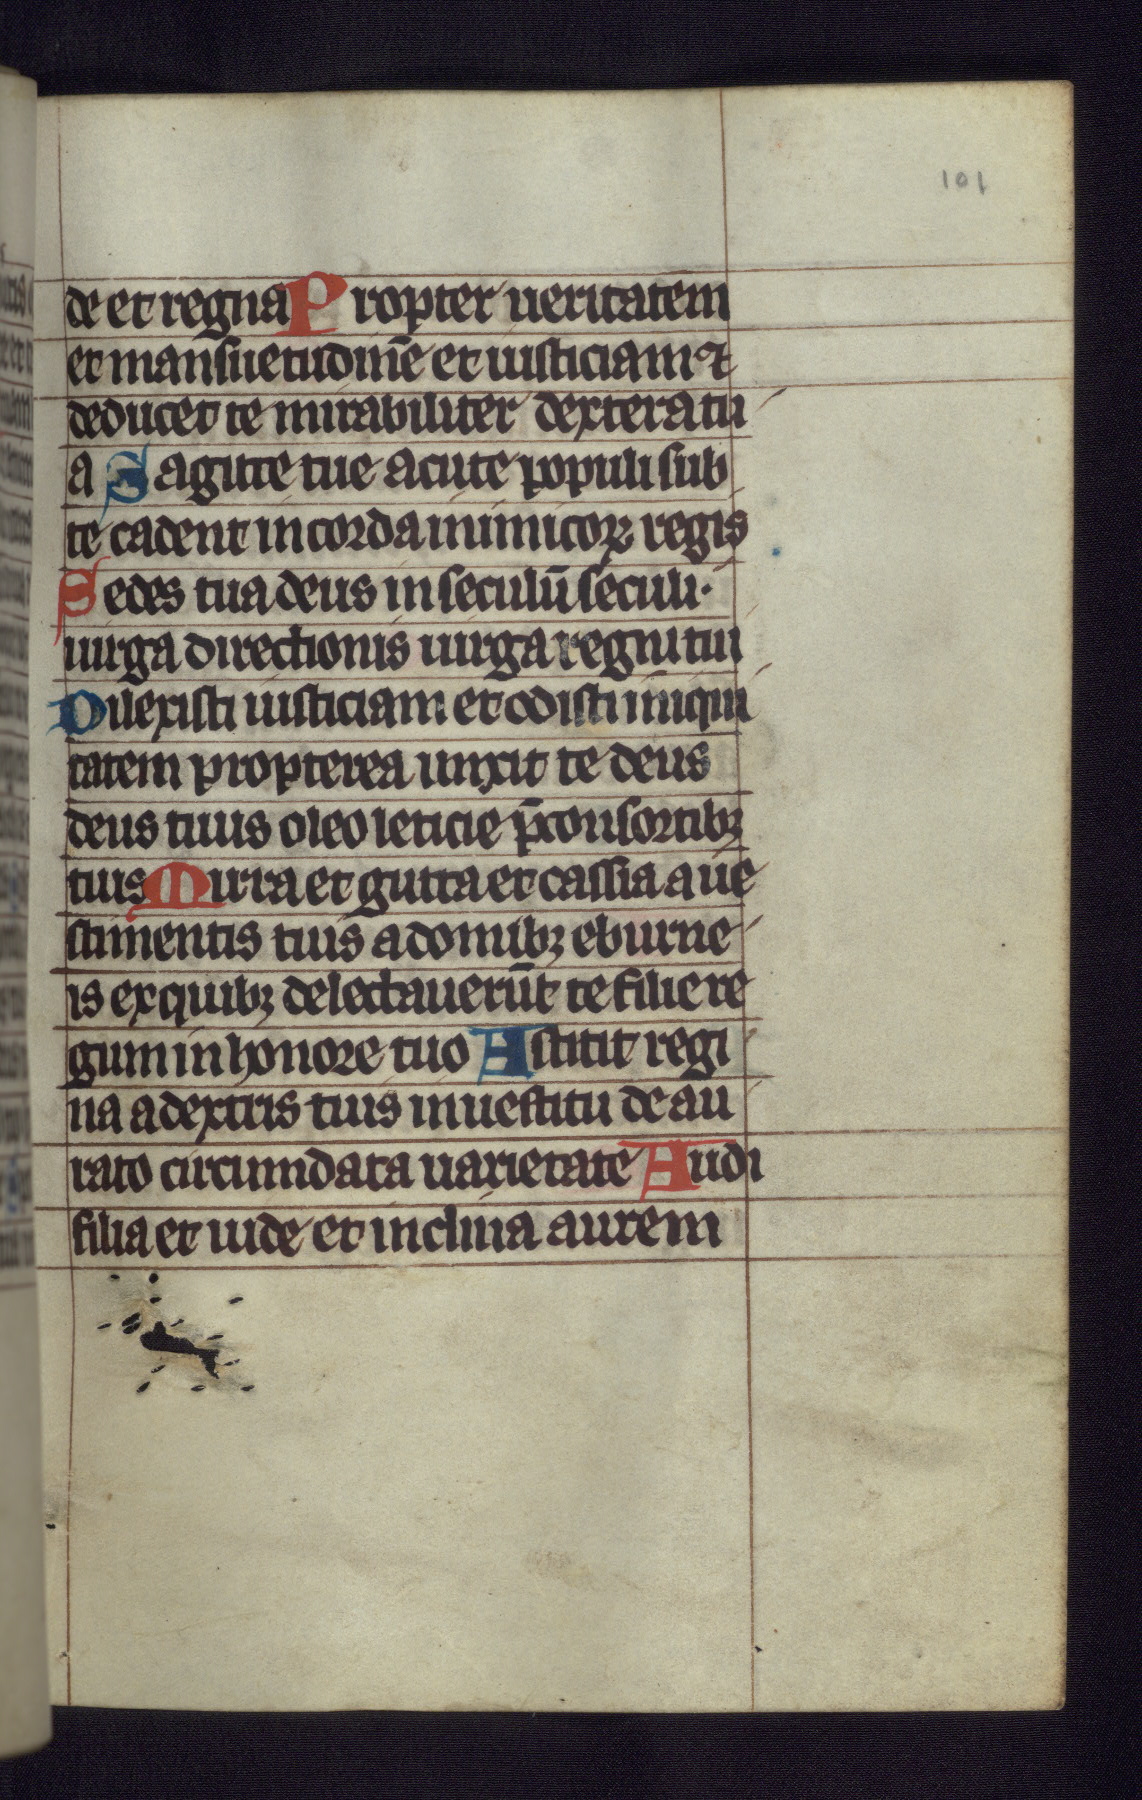 101
de et regna Propter ueritatem
et mansuetudinē et iusticiam ⁊
deducet te mirabiliter dextera tu
a Sagitte tue acute populi sub
te cadent in corda inimicoꝝ regis
Sedes tua deus in seculū seculi·
uirga directionis uirga regni tui
Dilexisti iusticiam et odisti iniqui
tatem propterea unxit te deus
deus tuus oleo leticie p̄ consortibꝫ
tuis Mirra et gutta et cassia a ue
stimentis tuis a domibꝫ eburne
is ex quibꝫ delectauerūt te filie re
gum in honore tuo Astitit regi
na a dextris tuis in uestitu deau
rato circumdata uarietate Audi
filia et uide et inclina aurem